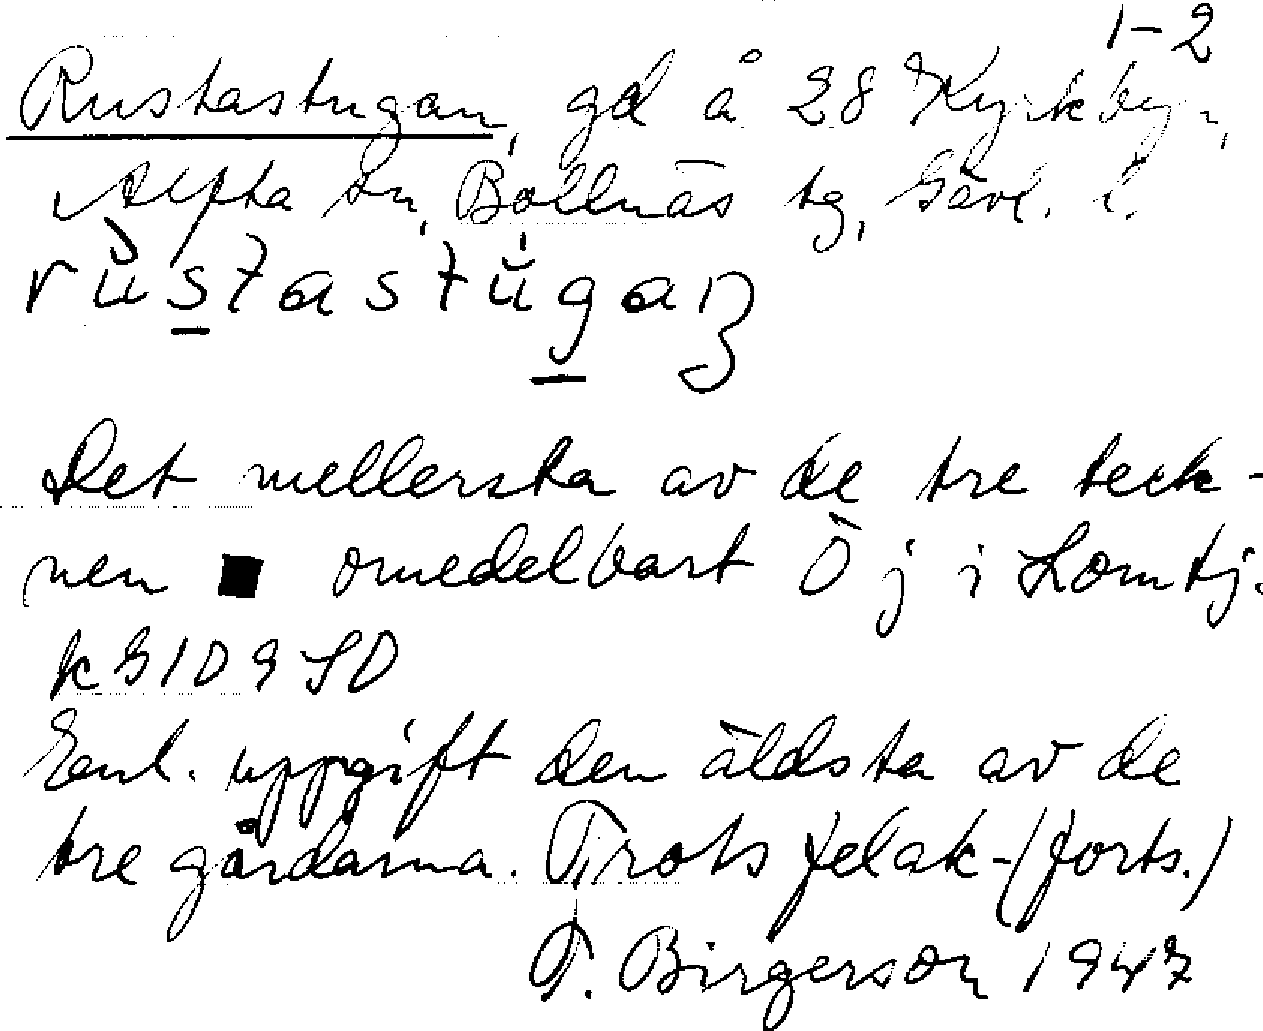 1-2
Rustastugan, gd å 28 Kyrkbyn,
Alfta sn, Bollnäs tg, Gävl. l.
rùstastu̇gaꞑ
Det mellersta av de tre teck-
nen ■ omedelbart Ö j i Lomtj.
k G1D9SD
Enl. uppgift den äldsta av de
tre gårdarna. Trots felak-(forts.)
T. Birgerson 1947